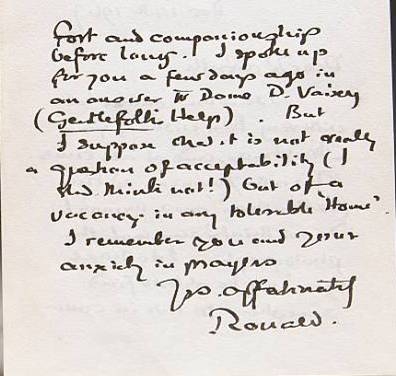 fort and companionship
before long. I spoke up
for you a few days ago in
an answer to Dame D. Vaisey
(Gentlefolk's Help). But
I suppose that it is not really
a question of acceptability (I
shd think not!) but of a
vacancy in any tolerable 'Home'.
I remember you and your
anxiety in prayers
Yrs. affectionately
Ronald.